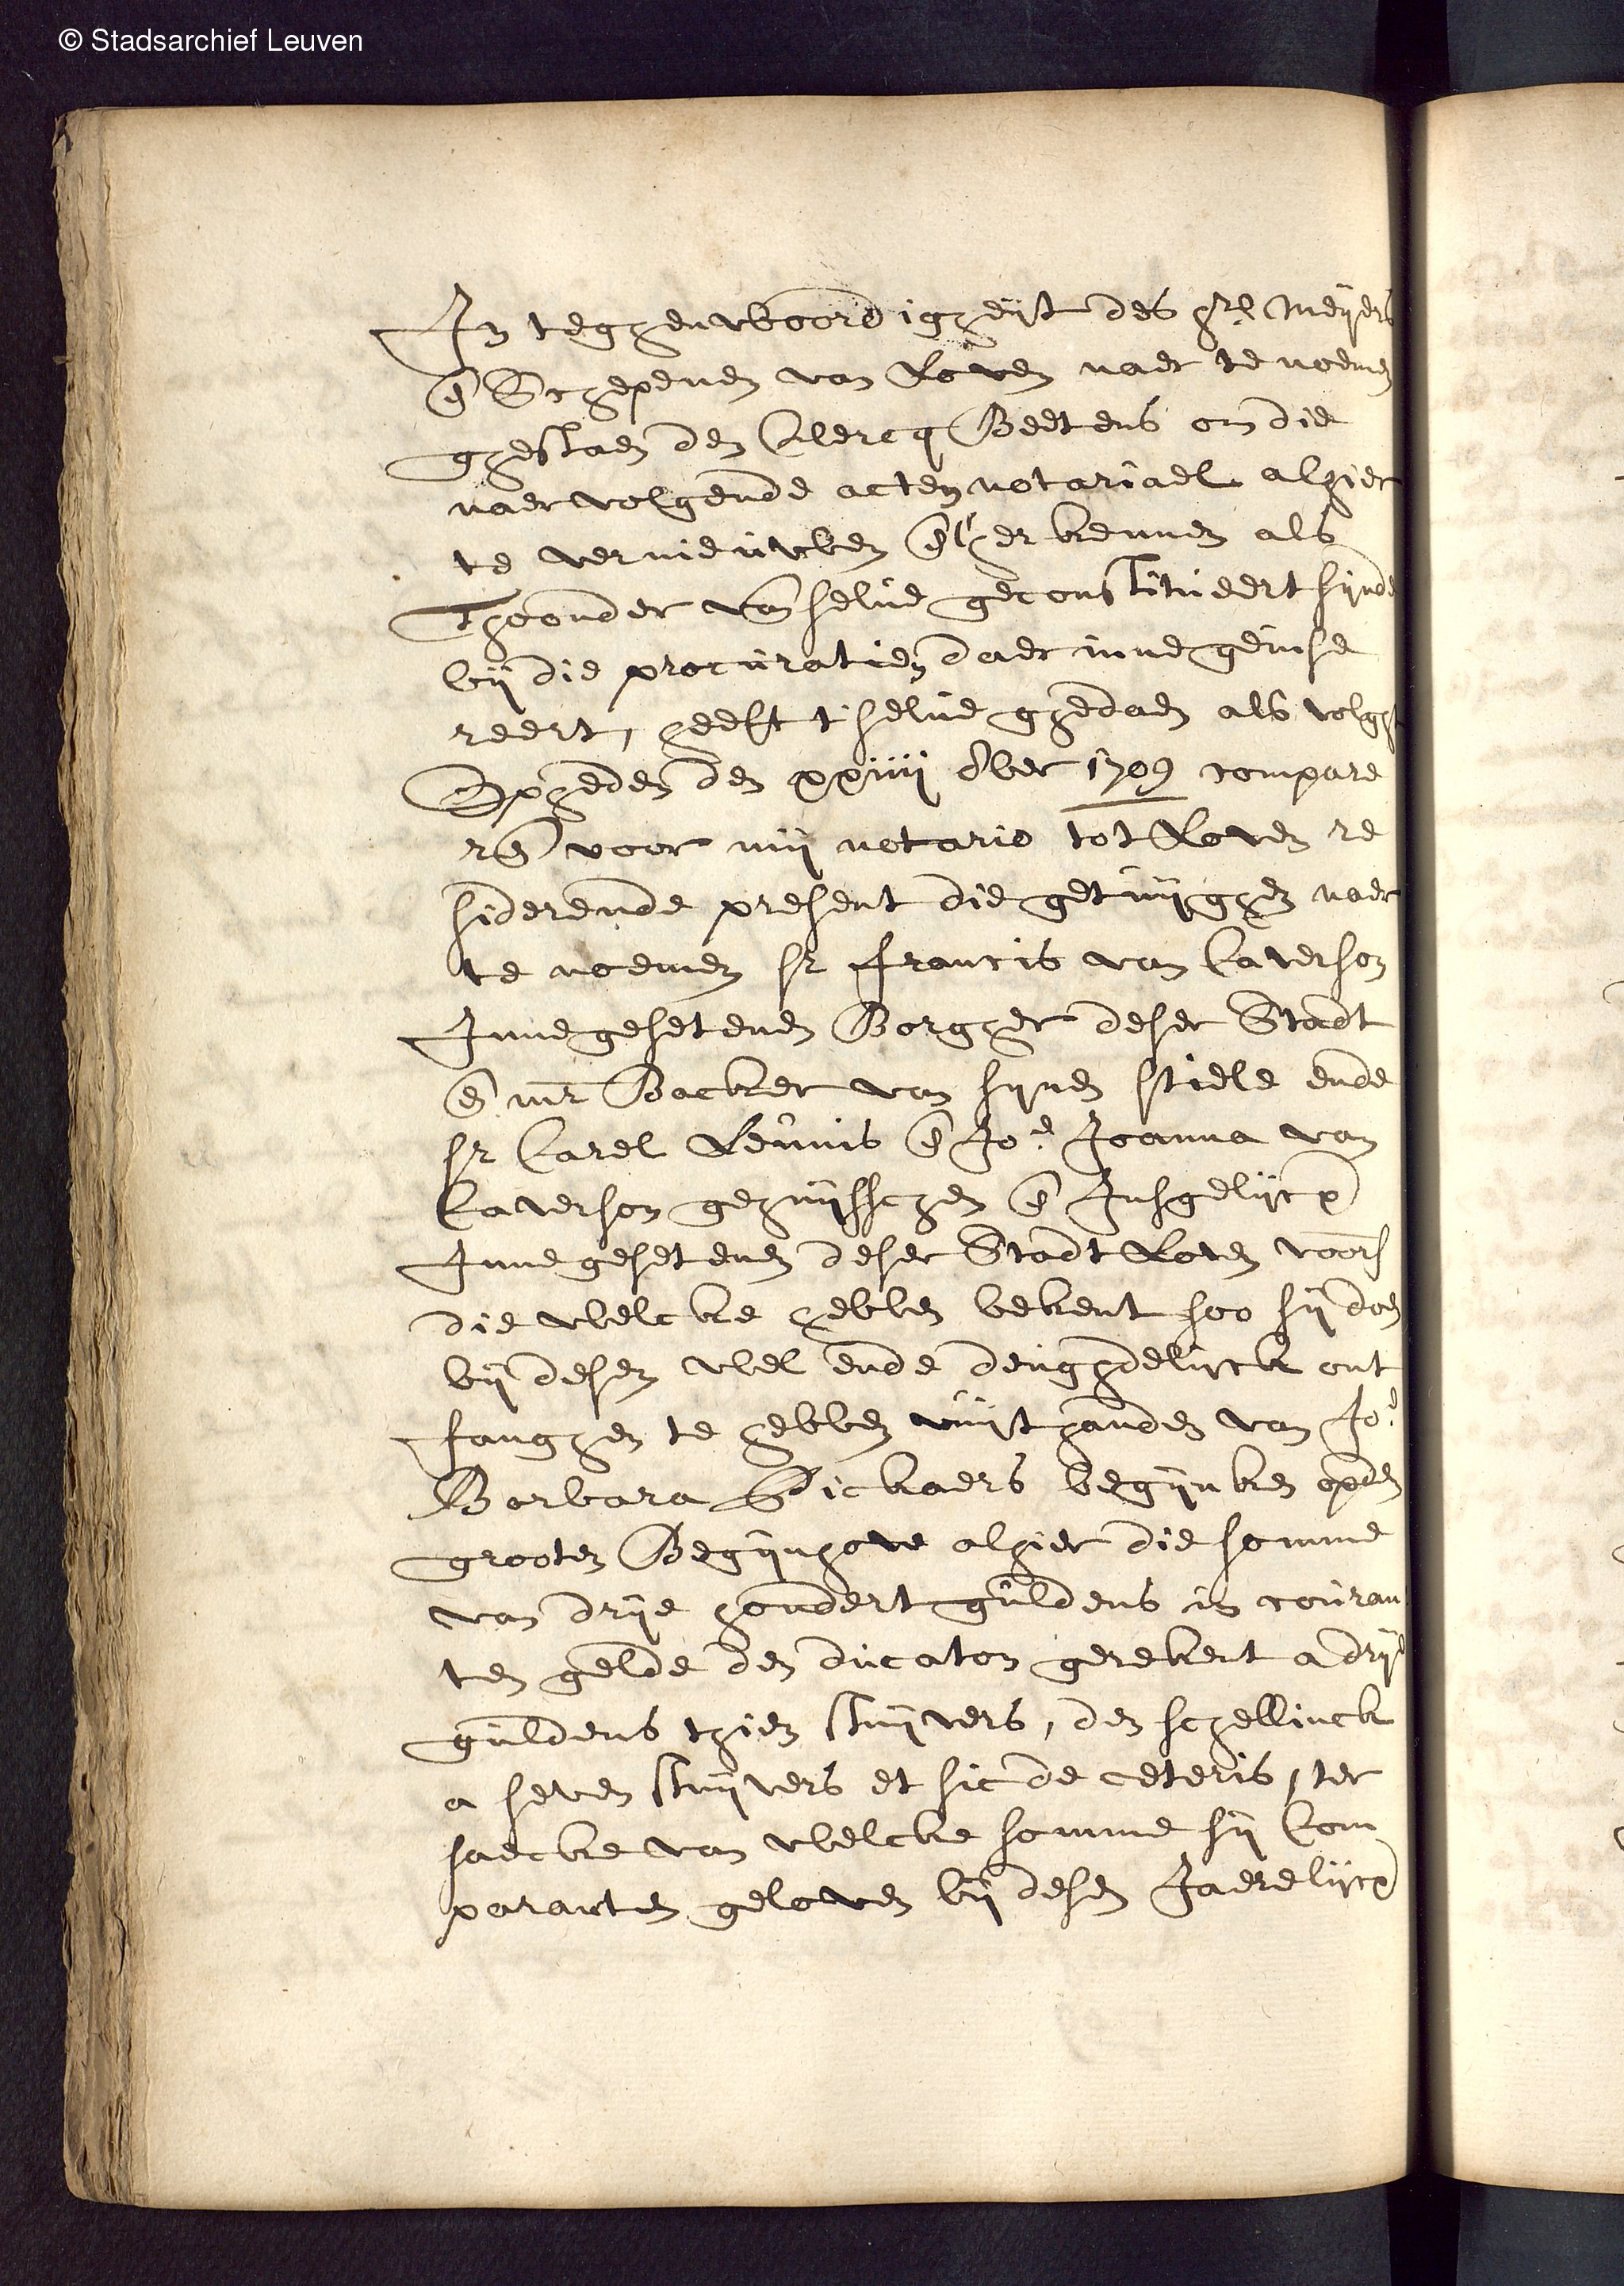 © Stadsarchief Leuven
In teghenwoordigheijt des heeren Meijers
en(de) Schepenen van Loven naer te noemen
ghestaen den Clercq Beetens om die
naervolgende acten notariael alhier
te vernieuwen en(de) t'herkennen als
Theonder van selve geconstitueert sijnde
bij die procuratien daer inne geinse
reert, heeft t'selve ghedaen als volght
Op heden den xxiiii 8ber 1709 compare
ren(de) voor mij notario tot Loven re
siderende present die getuijghen naer
te noemen sr Francis van Caverson
Innegesetenen Borgher deser Stadt
en(de) mr Backer van sijnen stiele ende
sr Carel Leunis en(de) Joe Joanna van
Caverson gehuijsschen en(de) Insgelijcx
Innegesetenen deser Stadt Loven voors
die welcke hebben bekent soo sij doen
bij desen wel ende deughdelijck ont
fanghen te hebben uuijt handen van Joe
Barbara Sickaers begijnken opden
grooten Begijnhove alhier die somme
van drije hondert guldens in couran
ten gelde den ducaton gerekent a drije
guldens thien stuijvers, den schellinck
a seven stuijvers et sic de ceteris, ter
saecke van welcke somme sij Com
paranten geloven bij desen Jaerelijcx